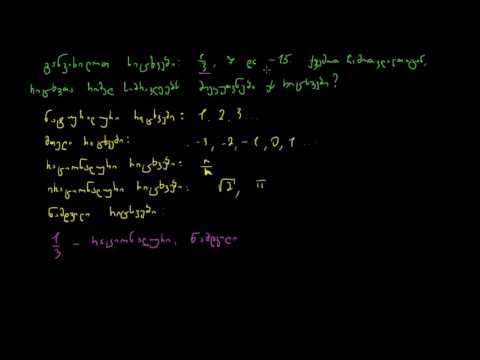 განვიხილოთ რიცხვები: 1/3, 7 და -15 ქვემოთ ჩამოთვლილთაგან,
რიცხვთა რომელ სიმრავლეებს მიეკუთვნება ეს რიცხვები?
ნატურალური რიცხვები: 1, 2, 3 ...
მთელი რიცხვები: ... -3, -2, -1, 0, 1 ...
რაციონალური რიცხვები: n/k
ირაციონალური რიცხვები: √2, π
ნამდვილი რიცხვები:
1/3 – რაციონალური, ნამდვილი